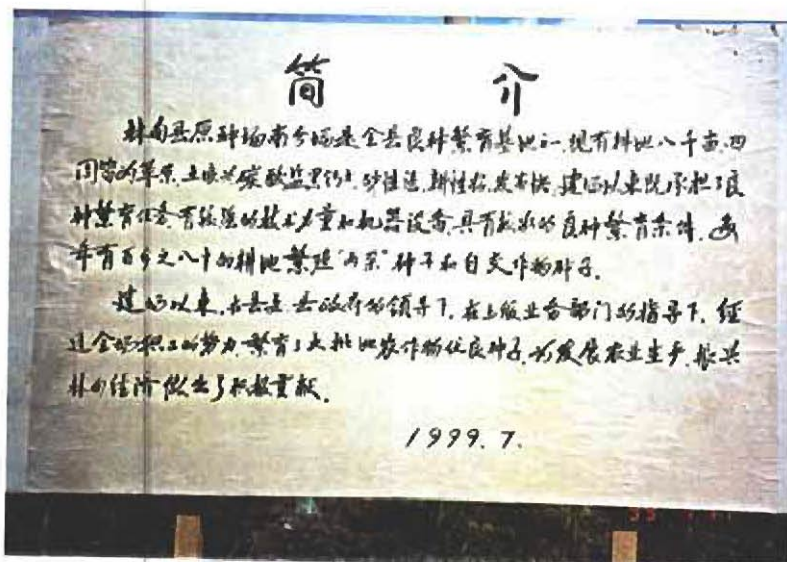 简 介
林甸县原种场南分场是全县良种繁育基地之一,现有耕地八千亩,四
周皆为草原,土壤为碳酸盐黑钙土,砂性适,耕性松,发苗快,建场以来既承担了良
种繁育任务,有较强的技术力量和机器设备,具有较好的良种繁育条件,每
年有百分之八十的耕地繁殖“两系”种子和自交作物种子。
建场以来,在县委、县政府的领导下,在上级业务部门的指导下,经
过全场职工的努力,繁育了大批地农作物优良种子,为发展农业生产,振兴
林甸经济做出了积极贡献。
1999.7.